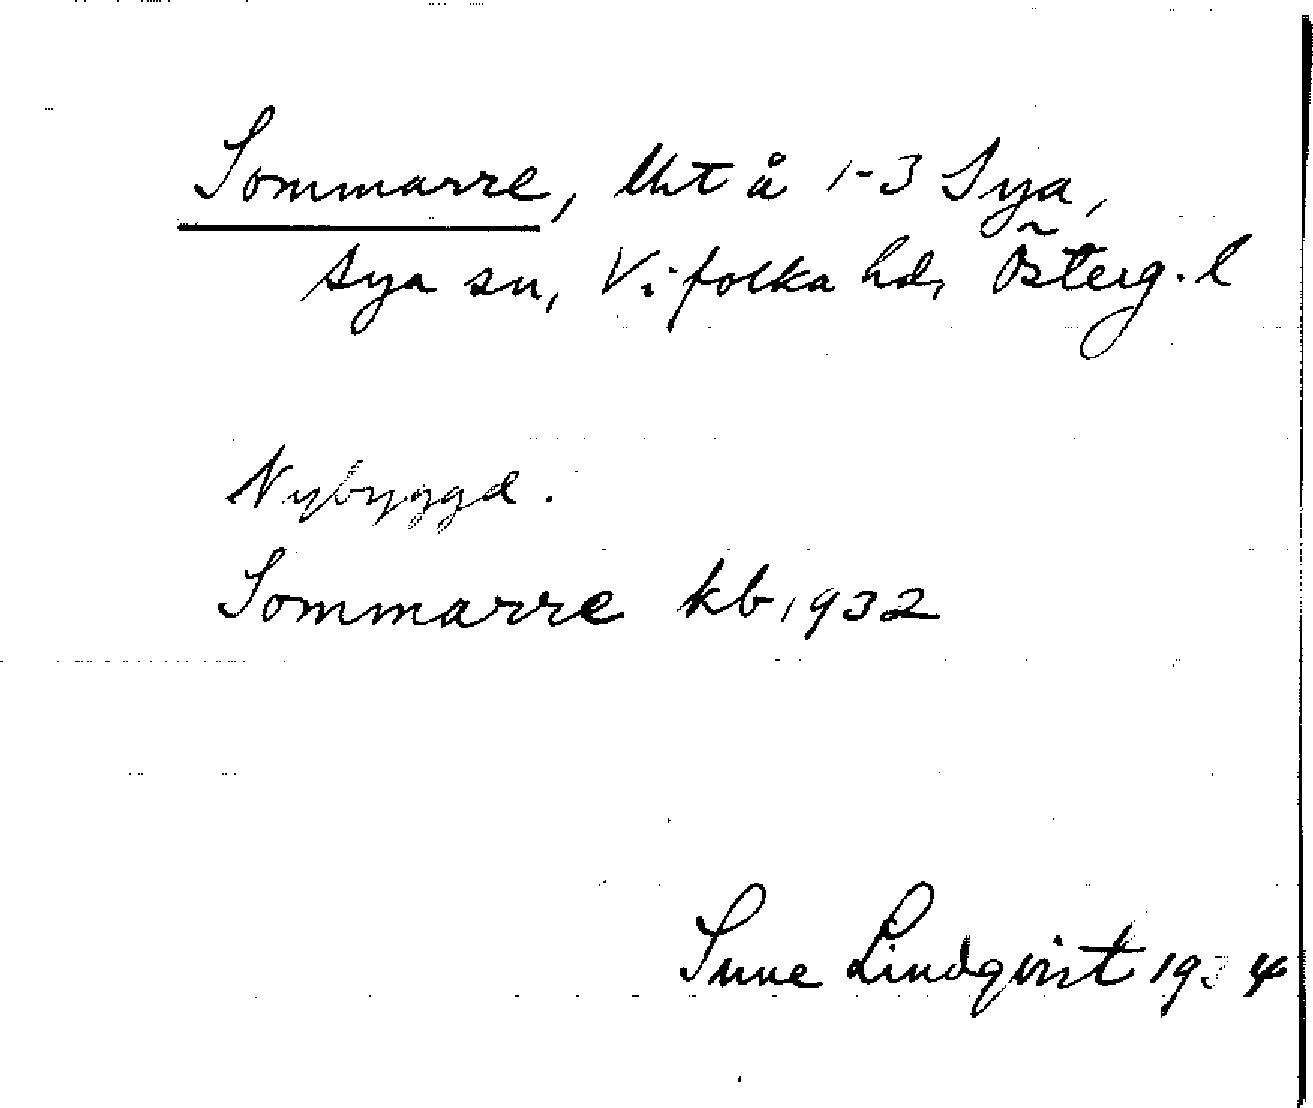 Sommarre, lht å 1-3 Sya,
Sya sn, Vifolka hd, Österg. l
Nybyggd.
Sommarre kb 1932
Sune Lindqvist 1934